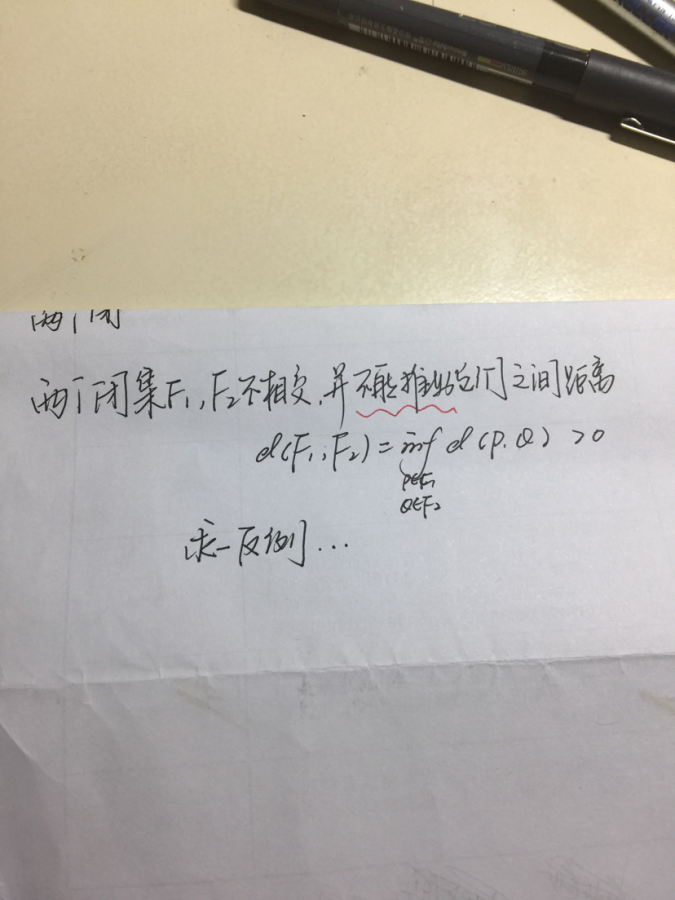 两个闭
两个闭集F₁,F₂不相交,并不能推出它们之间距离
d(F₁,F₂)=inf d(P,Q)>0
P∈F₁
Q∈F₂
求一反例...